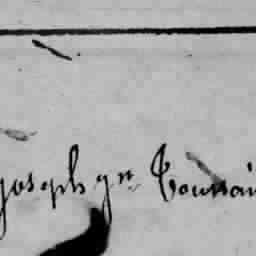 joseph gn Toussain